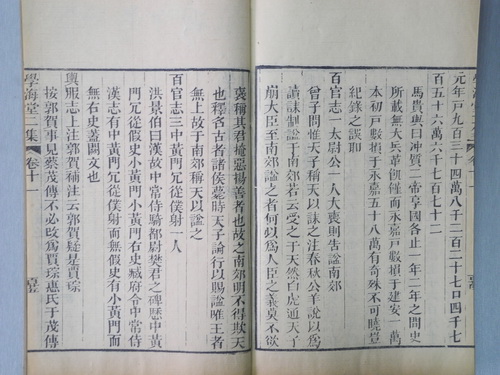 元年戸九百三十四萬八千二百二十七口四千七
百五十六萬六千七百七十二
馬貴與曰二帝享國各止一年二年之間史
所載無大兵革饑饉而永嘉戸數損于建安一萬
本初戸數損于永嘉五十八萬有奇殊不可曉豈
紀錄之誤耶
百官志一太尉公一人大喪則告諡南郊
曾子問惟天子稱天以誄之注春秋公羊說以爲
讀誄制諡于南郊若云受之于天然白虎通天子
崩大臣至南郊諡之者何以爲人臣之義莫不欲
襃稱其君掩惡揚善者也故之南郊明不得欺天
也釋名古者諸侯薨時天子論行以賜諡唯王者
無上故于南郊稱天以諡之
百官志三中黃門冗從僕射一人
洪景伯曰漢故中常侍騎都尉樊君之碑歷中黃
門冗從假史小黃門小黃門右史臧府令中常侍
漢志有中黃門冗從僕射而無假史有小黃門而
無右史蓋闕文也
輿服志上注郭賀補注云郭賀疑是賈琮
按郭賀事見蔡茂傳不必改爲賈琮惠氏于茂傳
學海堂二集 卷十一